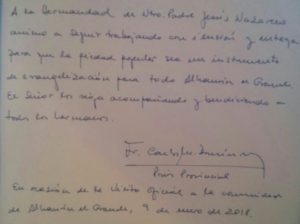 A la Hermandad de Ntro. Padre Jesús Nazareno
animo a seguir trabajando con ilusión y entrega
para que la piedad popular sea un instrumento
de evangelización para todo Alhaurín el Grande.
El Señor los siga acompañando y bendiciendo a
todos los hermanos.
Fr. Carlos
Prior Provincial
En ocasión de la visita oficial a la comunidad
de Alhaurín el Grande, 9 de enero de 2018.